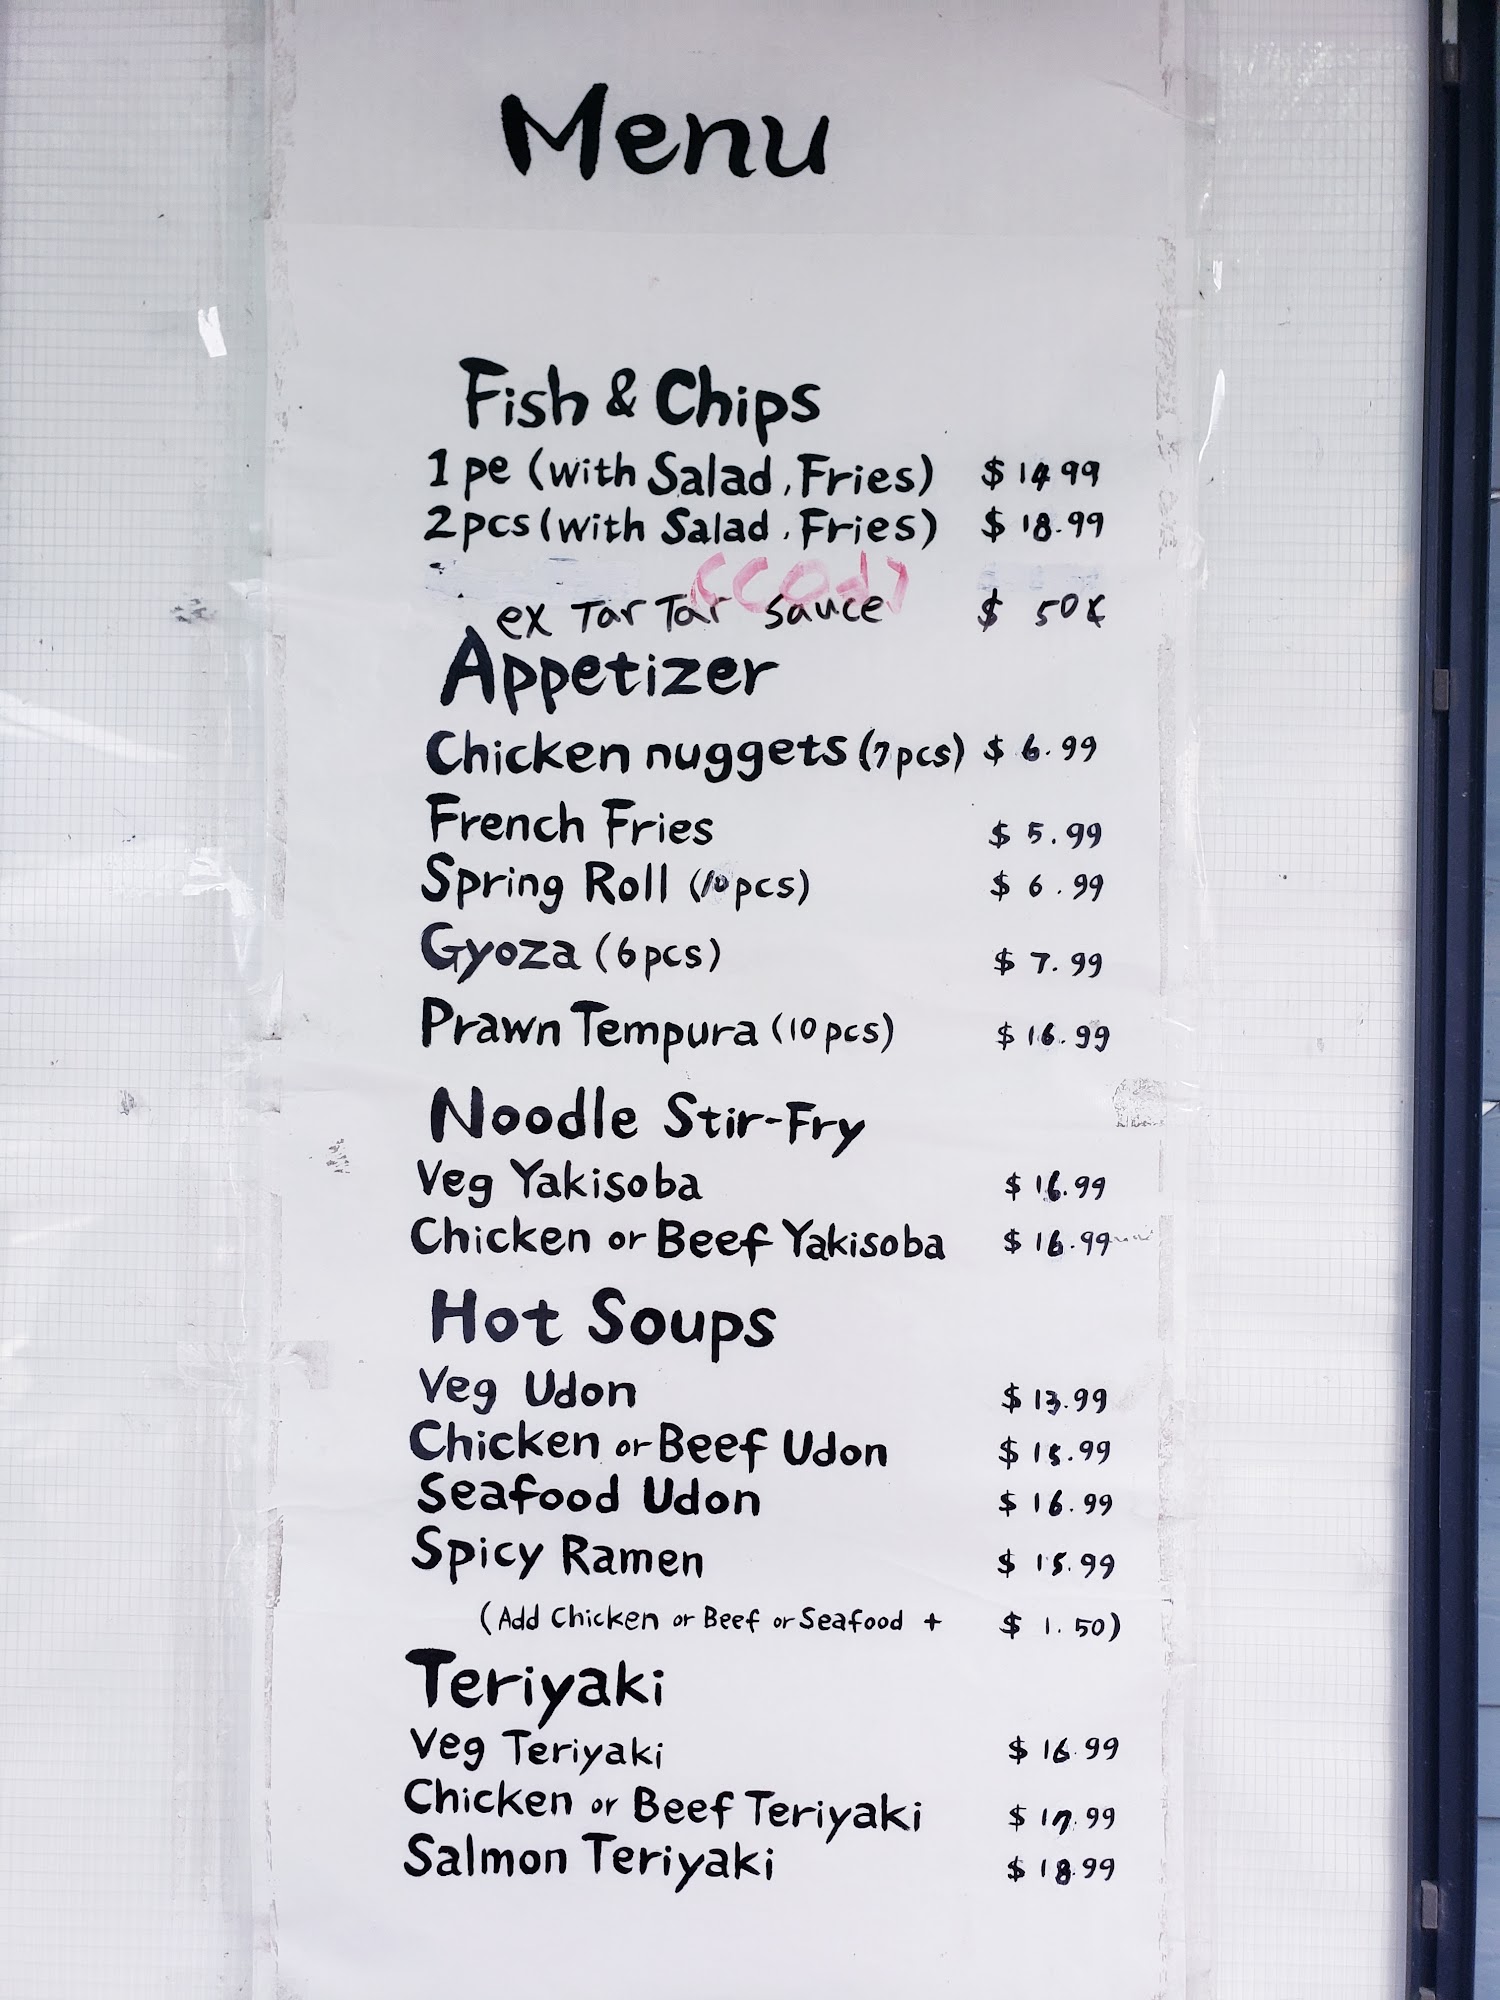 Menu
Fish & Chips
1 pc (with Salad, Fries) $ 14 99
2 pcs (with Salad, Fries) $ 18.99
(COd)
ex Tar Tar Sauce $ 50¢
Appetizer
Chicken nuggets (7 pcs) $ 6.99
French Fries $ 5.99
Spring Roll (10 pcs) $ 6.99
Gyoza (6 pcs) $ 7.99
Prawn Tempura (10 pcs) $ 16.99
Noodle Stir-Fry
Veg Yakisoba $ 16.99
Chicken or Beef Yakisoba $ 16.99
Hot Soups
Veg Udon $ 13.99
Chicken or Beef Udon $ 15.99
Seafood Udon $ 16.99
Spicy Ramen $ 15.99
(Add Chicken or Beef or Seafood + $ 1.50)
Teriyaki
Veg Teriyaki $ 16.99
Chicken or Beef Teriyaki $ 17.99
Salmon Teriyaki $ 18.99